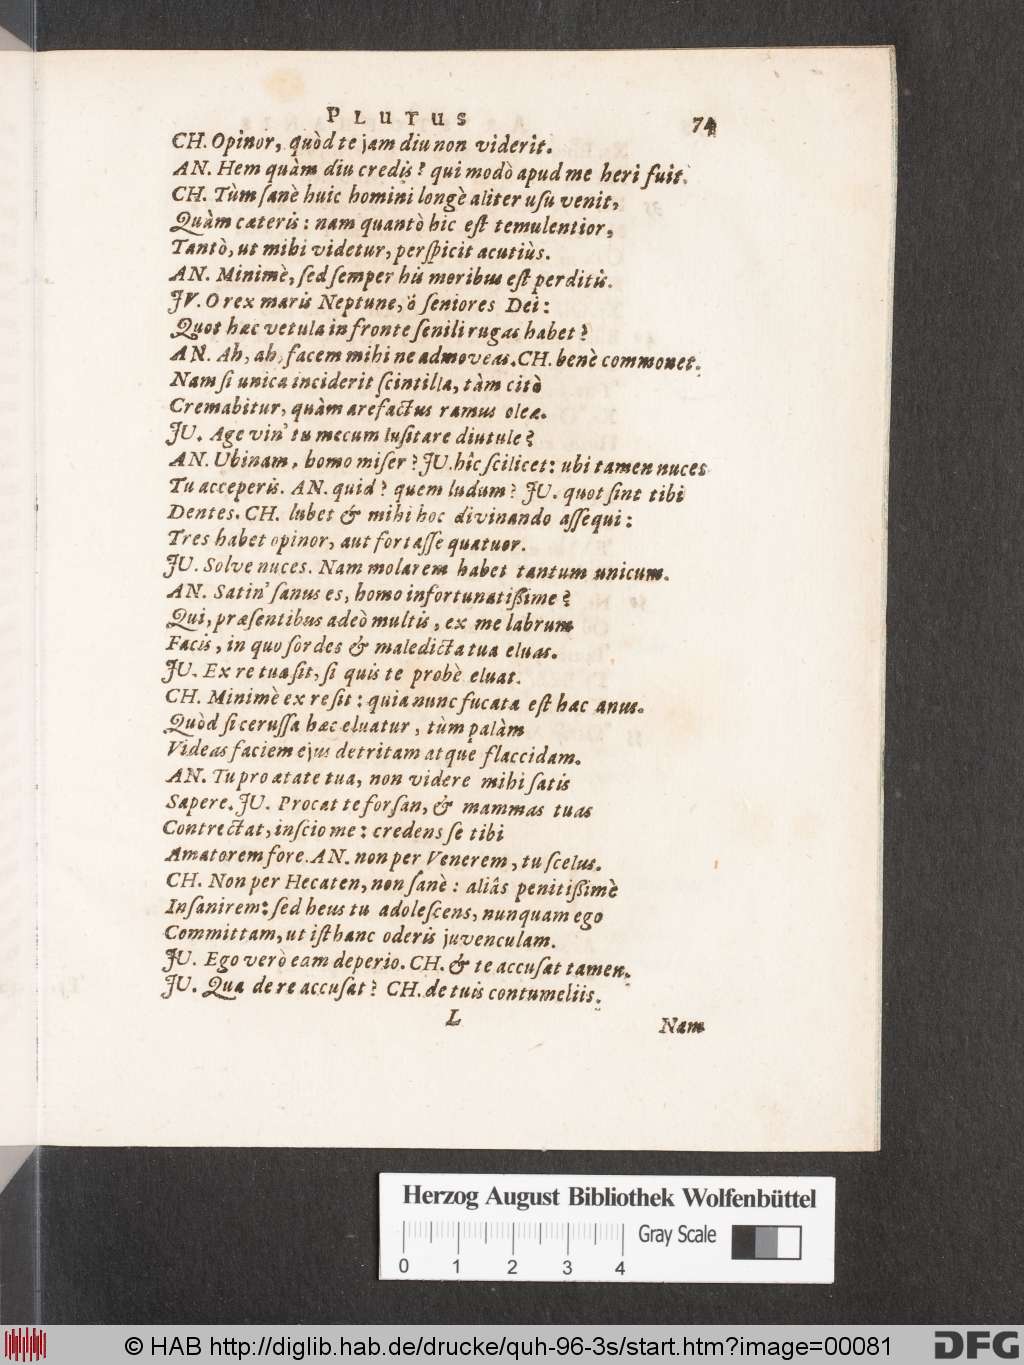 PLUTUS 74
CH. Opinor, quòd te jam diu non viderit.
AN. Hem quàm diu credis? qui modò apud me heri fuit.
CH. Tùm ſanè huic homini longè aliter uſu venit,
Quàm cæteris: nam quantò hic eſt temulentior,
Tantò, ut mihi videtur, perſpicit acutiùs.
AN. Minimè, ſed ſemper his moribus eſt perditis.
JV. O rex maris Neptune, ô ſeniores Dei:
Quot hæc vetula in fronte ſenili rugas habet?
AN. Ah, ah, facem mihi ne admoveas. CH. benè commonet.
Nam ſi unica inciderit ſcintilla, tàm citò
Cremabitur, quàm arefactus ramus oleæ.
JU. Age vin' tu mecum luſitare diutule?
AN. Ubinam, homo miſer? JU. hîc ſcilicet: ubi tamen nuces
Tu acceperis. AN. quid? quem ludum? JU. quot ſint tibi
Dentes. CH. lubet & mihi hoc divinando aſſequi:
Tres habet opinor, aut fortaſſe quatuor.
JU. Solve nuces. Nam molarem habet tantum unicum.
AN. Satin' ſanus es, homo infortunatiſſime?
Qui, præſentibus adeò multis, ex me labrum
Facis, in quo ſordes & maledicta tua eluas.
JU. Ex re tua ſit, ſi quis te probè eluat.
CH. Minimè ex re ſit: quia nunc fucata eſt hæc anus.
Quòd ſi ceruſſa hæc eluatur, tùm palàm
Videas faciem ejus detritam atque flaccidam.
AN. Tu pro ætate tua, non videre mihi ſatis
Sapere. JU. Procat te forſan, & mammas tuas
Contrectat, inſcio me: credens ſe tibi
Amatorem fore. AN. non per Venerem, tu ſcelus.
CH. Non per Hecaten, non ſanè: aliâs penitiſſimè
Inſanirem: ſed heus tu adoleſcens, nunquam ego
Committam, ut iſthanc oderis juvenculam.
JU. Ego verò eam deperio. CH. & te accuſat tamen.
JU. Qua de re accuſat? CH. de tuis contumeliis.
L Nam
Herzog August Bibliothek Wolfenbüttel
Gray Scale
0 1 2 3 4
© HAB http://diglib.hab.de/drucke/quh-96-3s/start.htm?image=00081
DFG